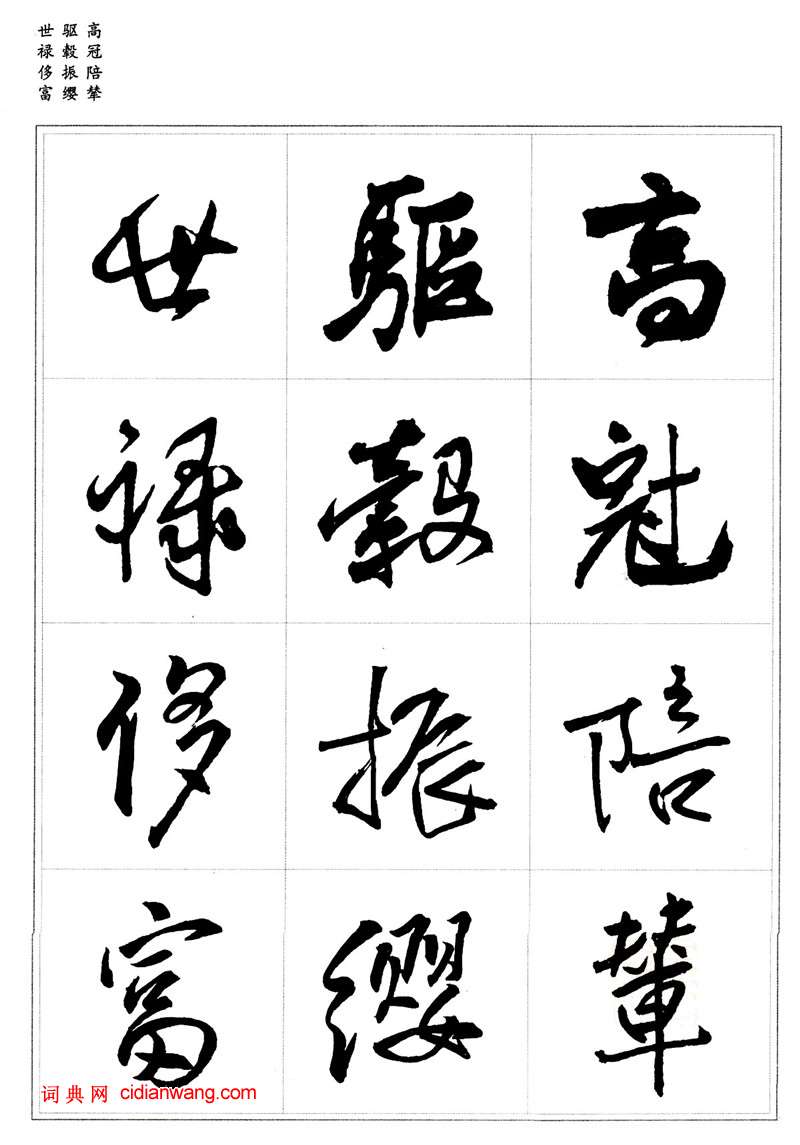 高冠陪辇
驱毂振缨
世禄侈富
高冠陪輦
驅轂振纓
世禄侈富
词典网 cidianwang.com